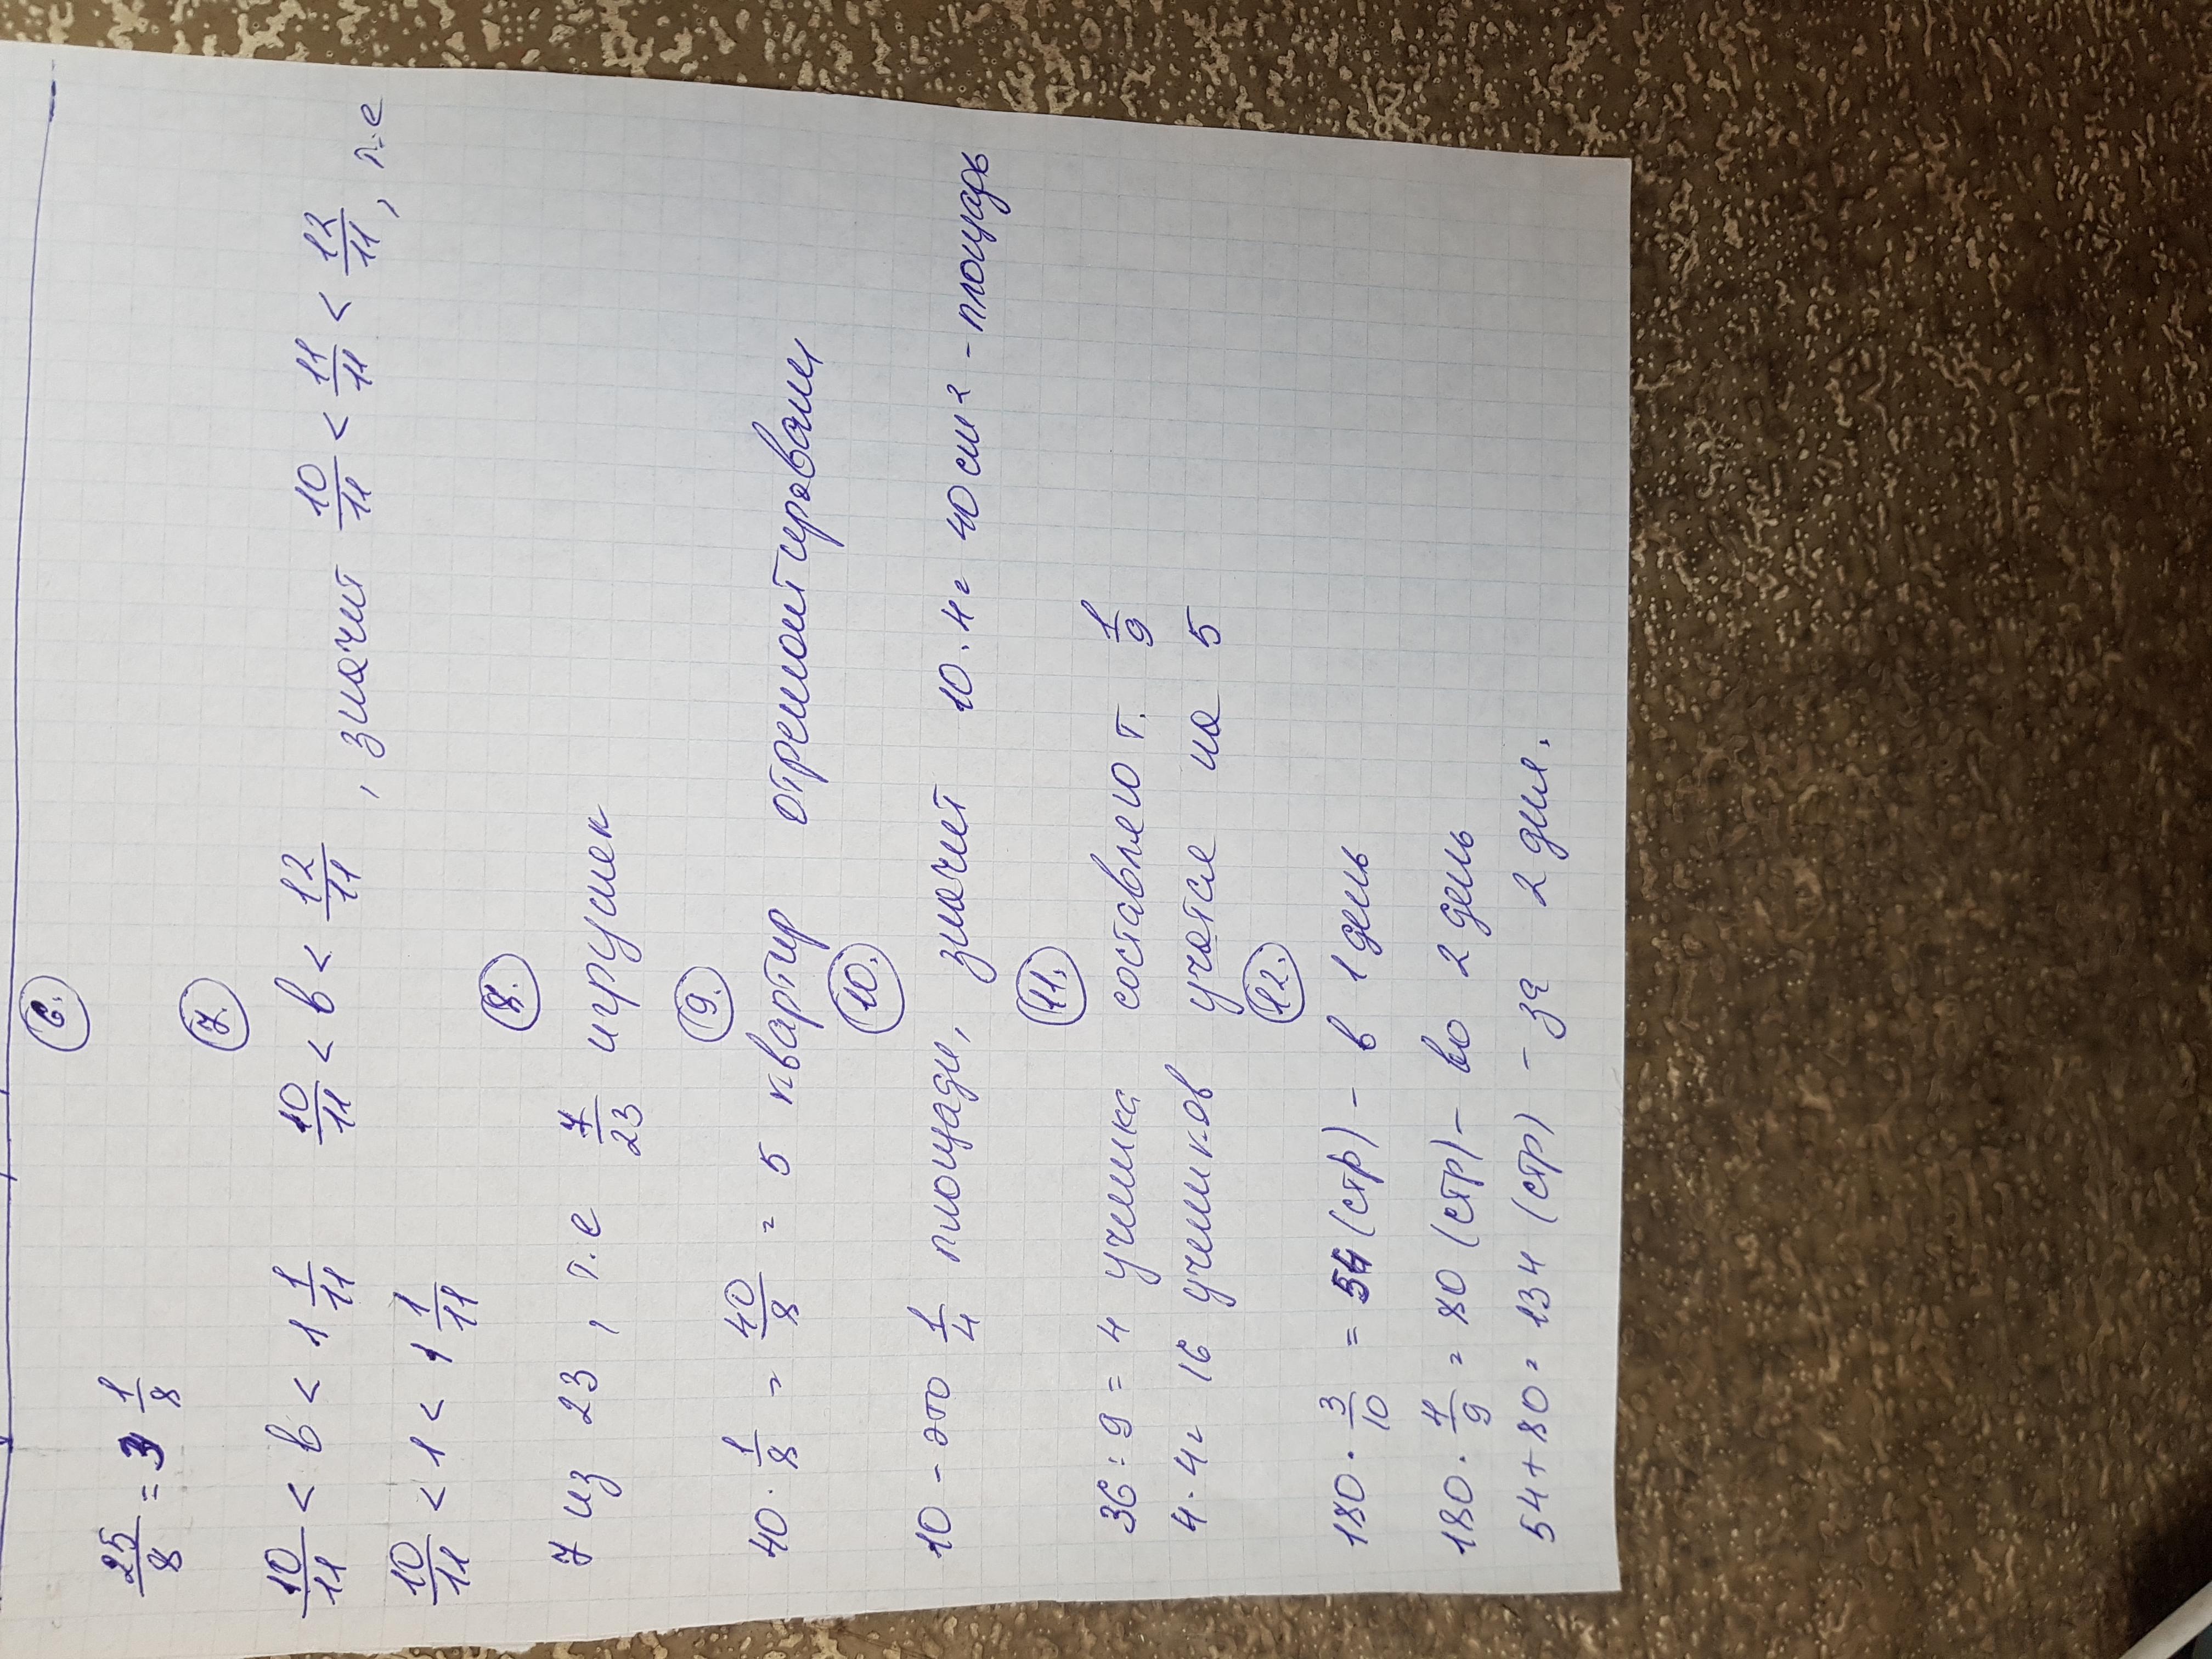 6.
25/8 = 3 1/8
7.
10/11 < в < 1 1/11 10/11 < в < 12/11 , значит 10/11 < 11/11 < 12/11 , т.е
10/11 < 1 < 1 1/11
8.
7 из 23 , т.е 7/23 игрушек
9.
40 · 1/8 = 40/8 = 5 квартир отремонтировали
10.
10 - это 1/4 площади, значит 10 · 4 = 40 см² - площадь
11.
36 : 9 = 4 ученика составляют. 1/9
4 · 4 = 16 учеников учатся на 5
12.
180 · 3/10 = 54 (стр) - в 1 день
180 · 4/9 = 80 (стр) - во 2 день
54 + 80 = 134 (стр) - за 2 дня.